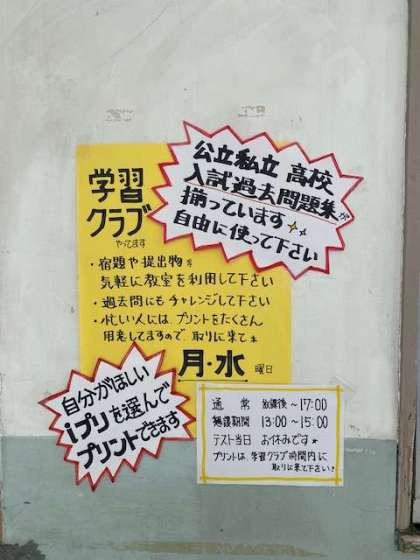 学習
クラブ
やってます
・宿題や提出物を
気軽に教室を利用して下さい
・過去問にもチャレンジして下さい
・忙しい人には、プリントをたくさん
用意してますので、取りに来てネ
月・水 曜日
公立私立 高校
入試過去問題集が
揃っています
自由に使って下さい
自分がほしい
iプリを選んで
プリントできます
通常 放課後～17:00
期間 13:00～15:00
テスト当日 お休みです
プリントは、学習クラブ時間内に
取りに来て下さい!